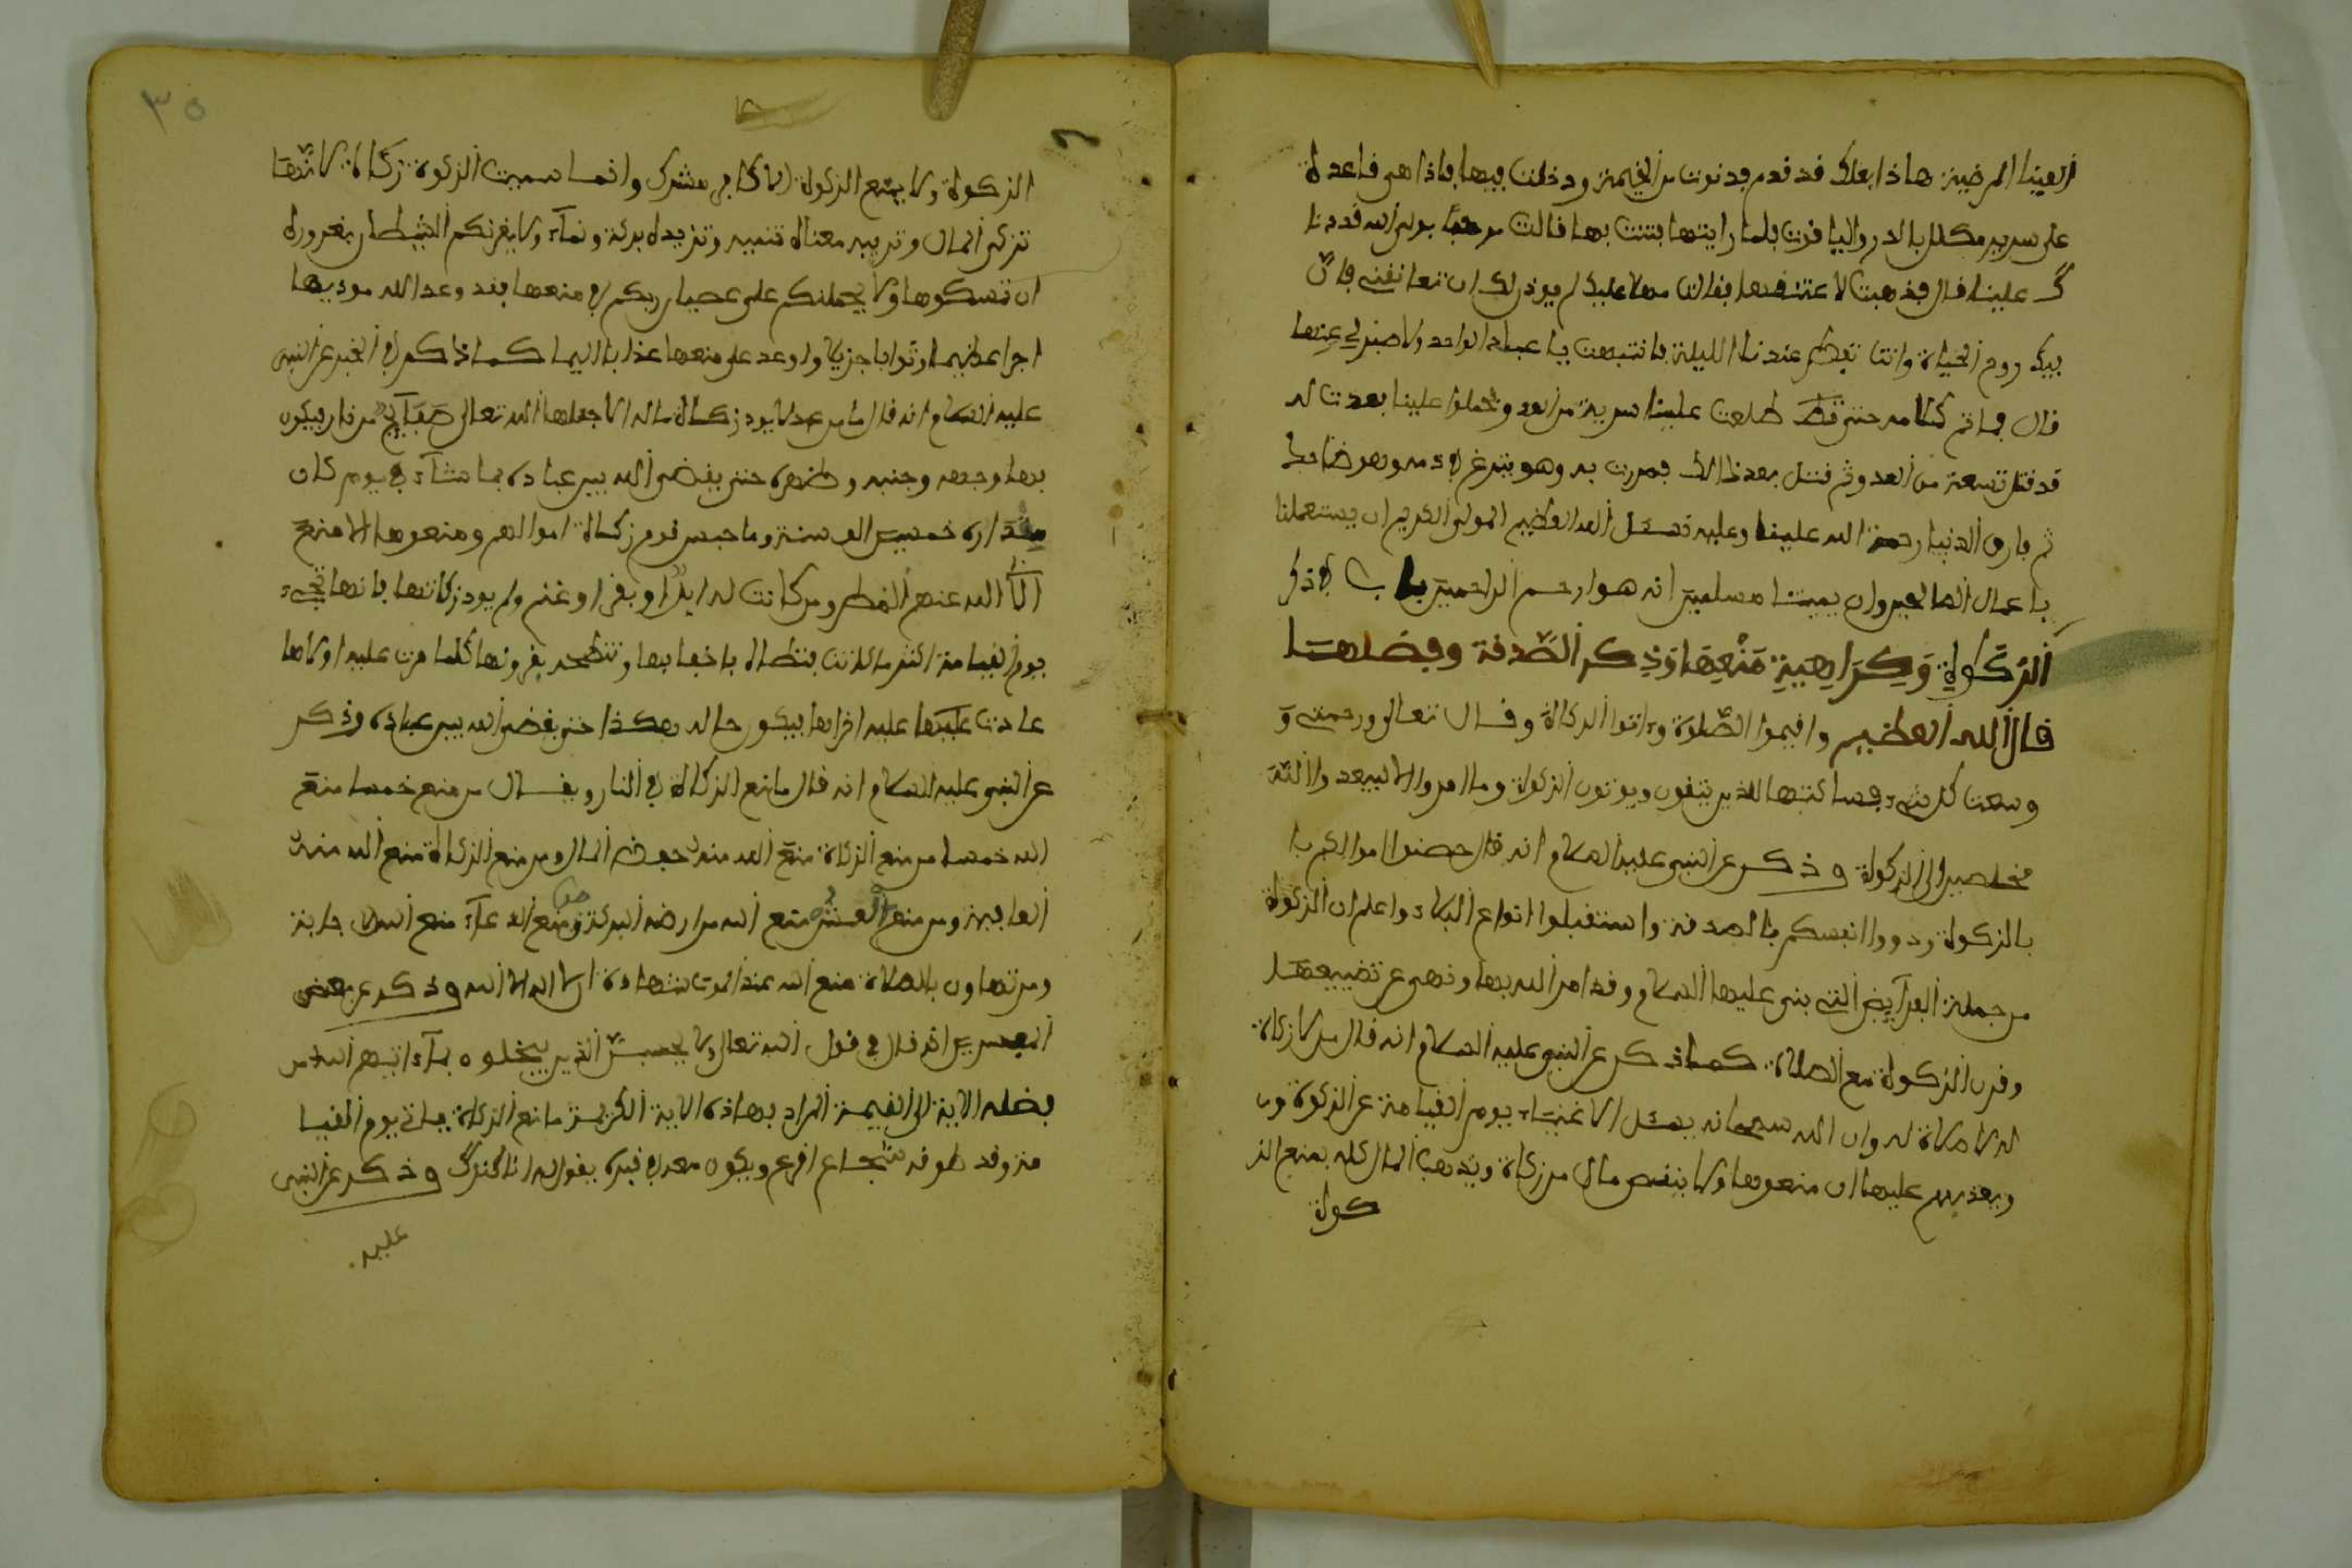 العينا المرضية هاذا بعلك قد قدم فدنوت من الخيمة ودخلت فيها فاذا هي قاعدة
على سرير مكلل بالدر والياقوت فلما رايتها فتنت بها فقالت مرحبا بولي الله قد دنا
ك علينا قال فذهبت لاعتنقها فقالت مهلا عليك لم يوذن لك ان تعانقني فان
فيك روح الحياة وانت تفطر عندنا الليلة فانتبهت يا عبد الواحد ولا صبر لي عنها
قال فما تم كلامه حتى قط طلعت علينا سرية من العدو وحملوا علينا فعدت له
قد قتل تسعة من العدو ثم قتل بعد ذالك فمررت به وهو يتمرغ في دمه وهو ضاحك
ثم فارق الدنيا رحمة الله علينا وعليه نسئل الله العظيم المولى الكريم ان يستعملنا
باعمال الصالحين وان يميتنا مسلمين انه هو ارحم الراحمين باب في ذكر
الزكوة وكراهية منعها وذكر الصدقة وفضلها
قال الله العظيم واقيموا الصلوة وءاتوا الزكاة وقال تعالى ورحمتي و
وسعت كل شيء فسا كتبها للذين يتقون ويوتون الزكوة وما امروا الا ليعبدوا الله
مخلصين الى الزكوة وذكر عن النبي عليه السلام انه قال حصنوا اموالكم با
بالزكوة وداووا انفسكم بالصدقة واستقبلوا انواع البلاء واعلم ان الزكوة
من جملة الفرآيض التي بني عليها السلام وقد امر الله بها ونهى عن تضييعها
وقرن الزكوة مع الصلاة كما ذكر عن النبي عليه السلام انه قال من لا زكاة
له لا صلاة له وان الله سبحانه يسئل الاغنياء يوم القيامة عن الزكوة و
ويعذبهم عليها ان منعوها ولا ينقص مال من زكاة ويذهب المال كله بمنع الز
كوة
٣٥
الزكوة ولا يمنع الزكوة الا كافر مشرك وانما سميت الزكوة زكاة لانها
تزكى المال وتربيه معناه تنميه وتزيده بركة ونمآء ولا يغرنكم الشيطان بغروره
ان تمسكوها ولا يحملنكم على عصيان ربكم في منعها فقد وعد الله موديها
اجرا عظيما وثوابا جزيلا واوعد على منعها عذابا اليما كما ذكر في الخبر عن النبي
عليه السلام انه قال ما من عبد لا يود زكاة ماله الا جعلها الله تعالى صفآيح من نار فيكون
بها وجهه وجنبه وظهره حتى يقضي الله بين عباده بما شآء في يوم كان
مقداره خمسين الف سنة وما حبس قوم زكاة اموالهم ومنعوها الا منع
الا الله عنهم المطر ومن كانت له ابل او بقر او غنم ولم يود زكاتها فانها تجيء
يوم القيامة اكثر ما كانت فتطاه باخفافها وتنطحه بقرونها كلما مرت عليه اولاها
عادت عليها عليه اخراها فيكون حاله هكذا حتى يقضي الله بين عباده وذكر
عن النبي عليه السلام انه قال مانع الزكاة في النار ويقال من منع خمسا منع
الله خمسا من منع الزكاة منع الله منه حفظ المال ومن منع الزكاة منع الله منه
العافية ومن منع العشر منع الله من ارضه البركة ومن منع الدعآء منع الله الاجابة
ومن تهاون بالصلاة منع الله عند الموت شهادة ان لا اله الا الله وذكر عن بعض
المفسرين انه قال في قول الله تعالى ولا يحسبن الذين يبخلون بمآ ءاتيهم الله من
فضله الاية الى القيمة المراد بهاذه الاية الكريمة مانع الزكاة يياتي يوم القيا
مة وقد طوقه شجاع اقرع ويكون معه في قبره يقول له انا كنزك وذكر عن النبي
عليه